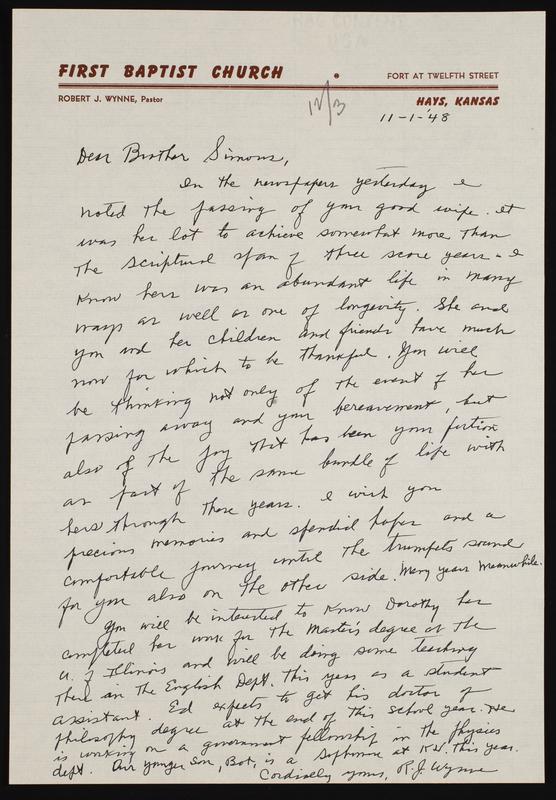 FIRST BAPTIST CHURCH
FORT AT TWELFTH STREET
ROBERT J. WYNNE, Pastor
HAYS, KANSAS
12/3
11-1-'48
Dear Brother Simons,
In the newspapers yesterday I
noted the passing of your good wife. It
was her lot to achieve somewhat more than
the scriptural span of three score years - I
know hers was an abundant life in many
ways as well as one of longevity. She and
you and her children and friends have much
now for which to be thankful. You will
be thinking not only of the event of her
passing away and your bereavement, but
also of the joy that has been your portion
as part of the same bundle of life with
hers through these years. I wish you
precious memories and splendid hopes and a
comfortable journey until the trumpets sound
for you also on the other side. Many years meanwhile.
You will be interested to know Dorothy has
completed her work for the Master's degree at the
U. of Illinois and will be doing some teaching
there in the English Dept. this year as a student
assistant. Ed expects to get his doctor of
philosophy degree at the end of this school year. He
is working on a government fellowship in the physics
dept. Our younger son, Bob, is a Sophomore at K.U. this year.
Cordially yours, R.J. Wynne